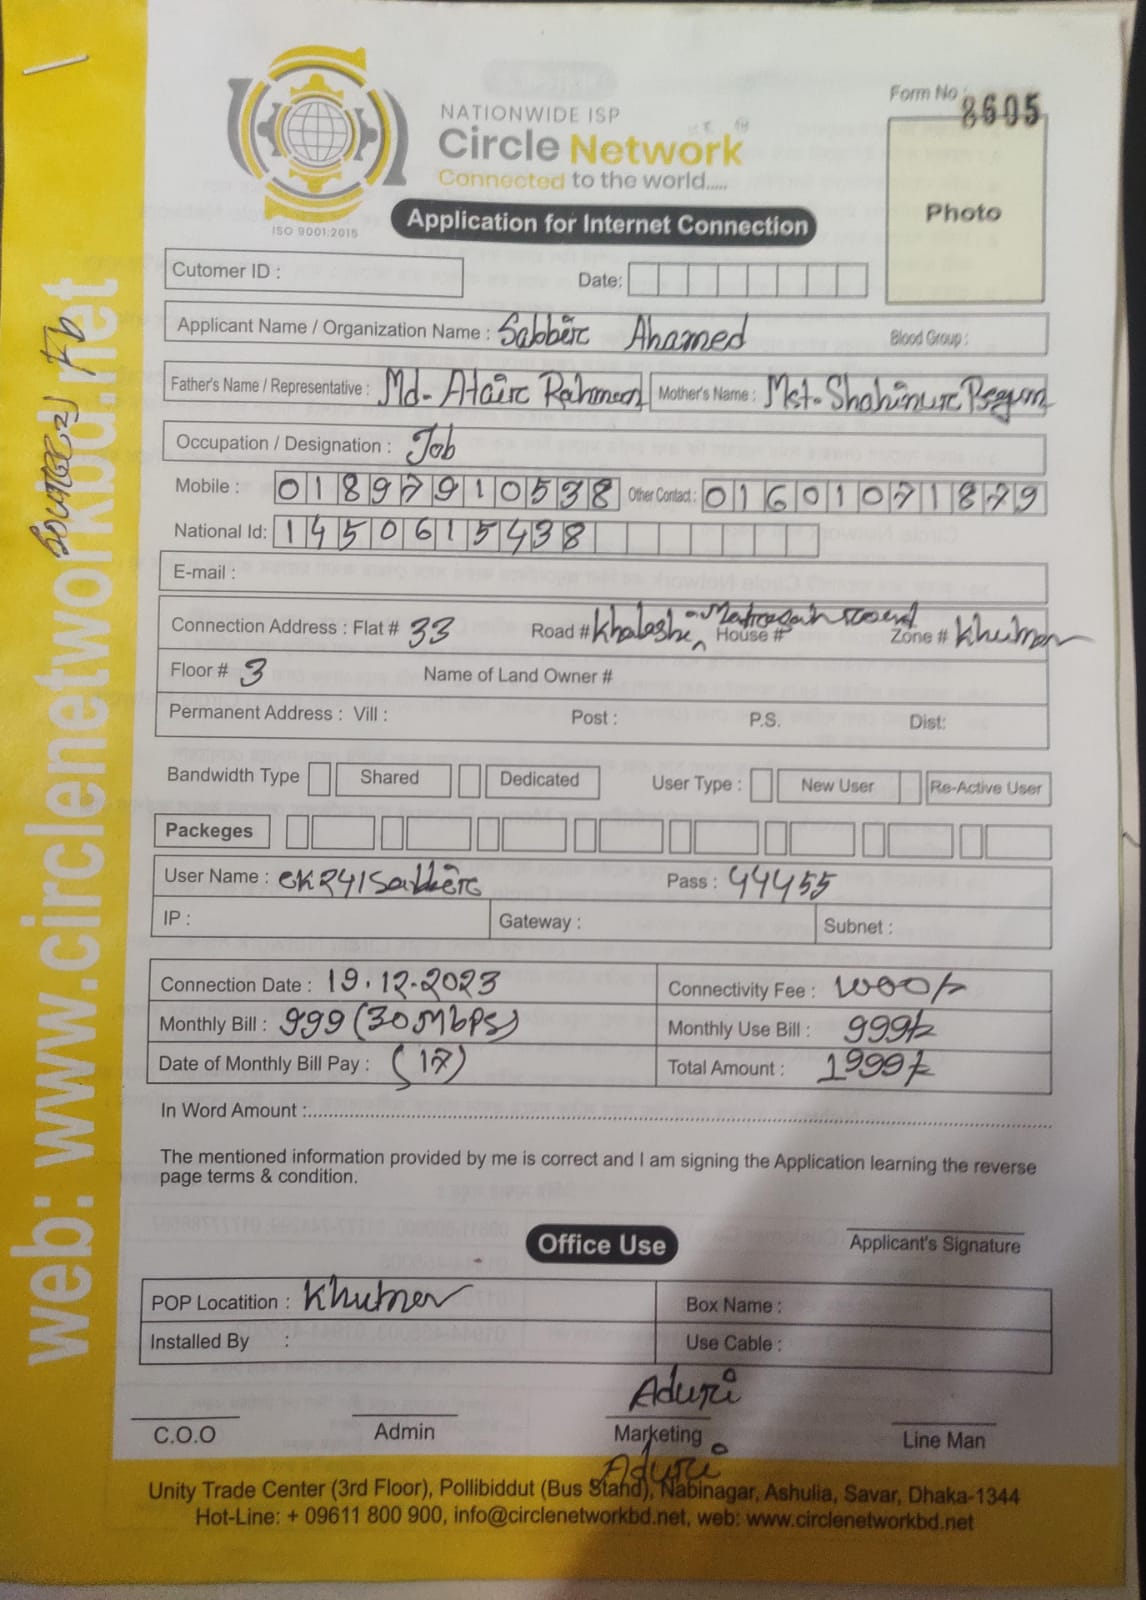 NATIONWIDE ISP
Circle Network
Connected to the world.....
ISO 9001:2015
Form No : 8605
Photo
Application for Internet Connection
Cutomer ID :
Date:
Applicant Name / Organization Name : Sabbir Ahamed Blood Group :
Father's Name / Representative : Md- Atair Rahman Mother's Name : Mst- Shahinur Begum
Occupation / Designation : Job
Mobile : 01897910538 Other Contact : 01601071879
National Id: 1450615438
E-mail :
Connection Address : Flat # 33 Road # Khalashi Madrasah road House # Zone #
Floor # 3 Name of Land Owner #
Permanent Address : Vill : Post : P.S. Dist:
Bandwidth Type Shared Dedicated User Type : New User Re-Active User
Packeges
User Name : Pass : 44455
IP : Gateway : Subnet :
Connection Date : 19.12.2023 Connectivity Fee : 1000/-
Monthly Bill : 999 (30Mbps) Monthly Use Bill : 999/-
Date of Monthly Bill Pay : (17) Total Amount : 1999/-
In Word Amount :
The mentioned information provided by me is correct and I am signing the Application learning the reverse
page terms & condition.
Applicant's Signature
Office Use
POP Locatition : Box Name :
Installed By : Use Cable :
Aduri
C.O.O Admin Marketing Line Man
Aduri
Unity Trade Center (3rd Floor), Pollibiddut (Bus Stand), Nabinagar, Ashulia, Savar, Dhaka-1344
Hot-Line: + 09611 800 900, info@circlenetworkbd.net, web: www.circlenetworkbd.net
web: www.circlenetworkbd.net